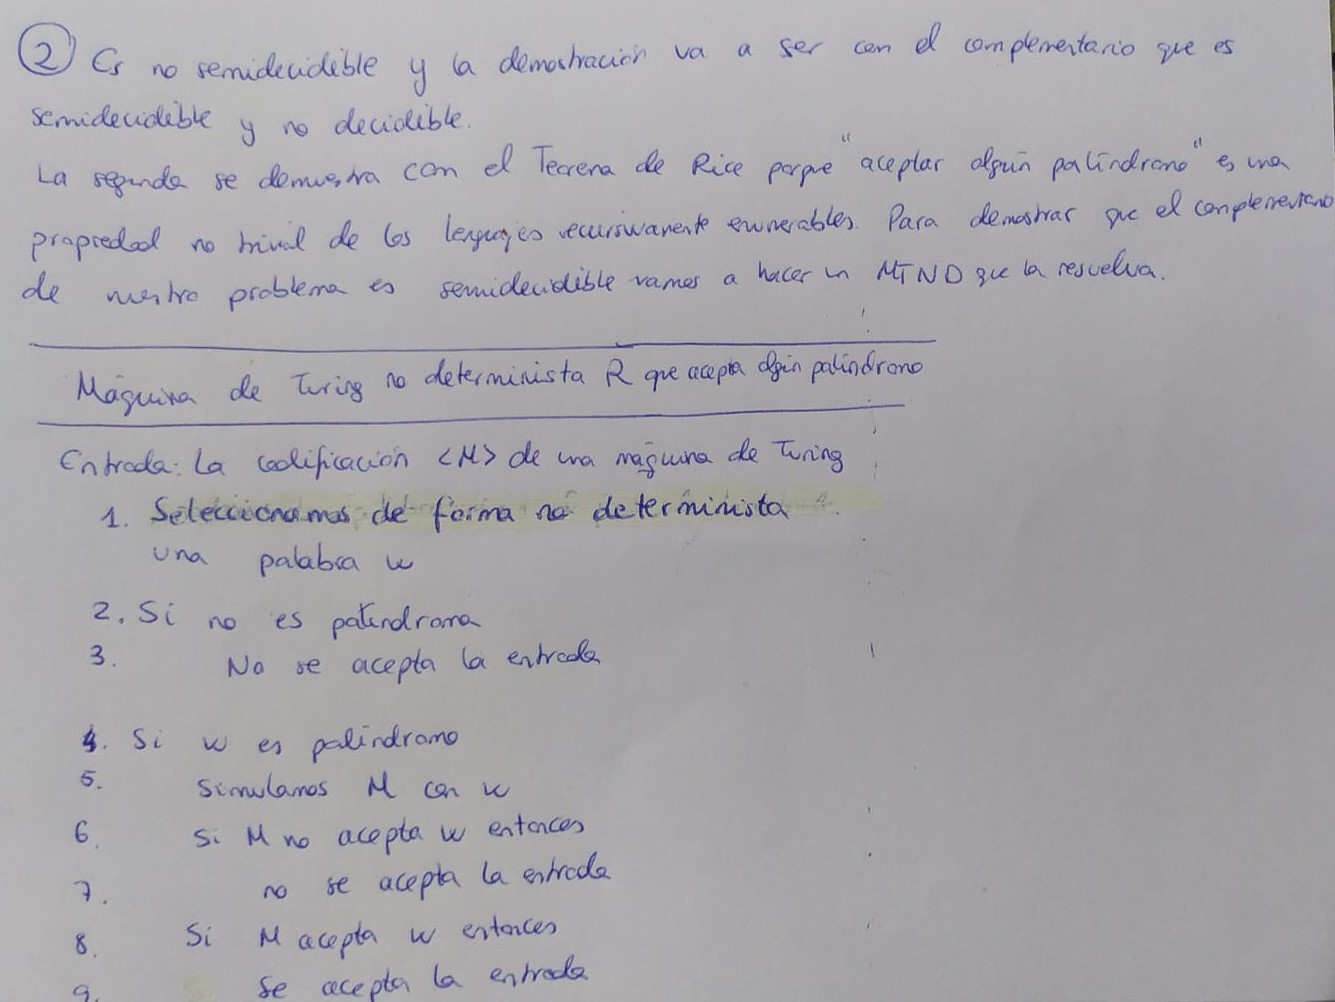 ② Es no semidecidible y la demostración va a ser con el complementario que es
semidecidible y no decidible.
La segunda se demuestra con el Teorema de Rice porque "aceptar algún palíndromo" es una
propiedad no trivial de los lenguajes recursivamente enumerables. Para demostrar que el complementario
de nuestro problema es semidecidible vamos a hacer un MTND que la resuelva.
Máquina de Turing no determinista R que acepta algún palíndromo
Entrada: La codificación <M> de una máquina de Turing
1. Seleccionamos de forma no determinista
una palabra w
2. Si no es palindroma
3. No se acepta la entrada
4. Si w es palíndromo
5. Simulamos M con w
6. Si M no acepta w entonces
7. no se acepta la entrada
8. Si M acepta w entonces
9. Se acepta la entrada